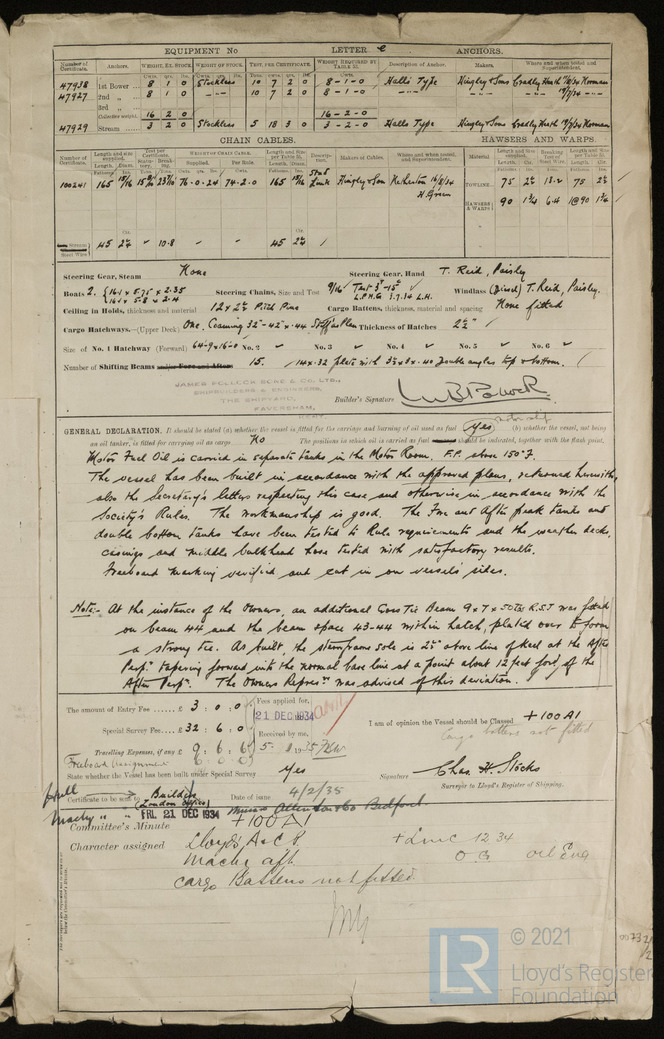 EQUIPMENT No LETTER e ANCHORS.
Number of Certificate. Anchors. WEIGHT, EX. STOCK. WEIGHT OF STOCK. TEST, PER CERTIFICATE. WEIGHT REQUIRED BY TABLE 31. Description of Anchor. Makers. Where and when tested and Superintendent.
47938 1st Bower 8 1 0 Stockless 10 7 2 0 8-1-0 Halls Type Hingley & Sons Cradley Heath Norman
47927 2nd " 8 1 0 10 7 2 0 8-1-0
3rd "
Collective weight 16 2 0 16-2-0
47929 Stream 3 2 0 Stockless 5 18 3 0 3-2-0 Halls Type Hingley & Sons Cradley Heath Norman
CHAIN CABLES. HAWSERS AND WARPS.
Number of Certificate. Length and size supplied. Test per Certificate. WEIGHT OF CHAIN CABLE. Supplied. Per Rule. Length and Size per Table 31. Description. Makers of Cables. Where and when tested, and Superintendent. Material Length and Size supplied. Breaking Test of Steel Wire. Length and Size per Table 31.
100241 165 15/16 76-0-24 74-2-0 165 15/16 Stud Link Hingley & Son Netherton 16/8/34 H. Green
TOWLINE 75 2¼ 13.2 75 2¼
HAWSERS & WARPS 90 1¾ 6.4 1@90 1¾
45 2¼ 10.8 45 2¼
Steering Gear, Steam None Steering Gear, Hand T. Reid, Paisley
Boats 2. {16.1 x 5.75 x 2.35 Steering Chains, Size and Test 9/16 Windlass (Diesel) T. Reid, Paisley.
16.1 x 5.8 x 2.4 L.P.H.G 3.7.34 L.H.
Ceiling in Holds, thickness and material 12 x 2½ Pitch Pine Cargo Battens, thickness, material and spacing None fitted
Cargo Hatchways.—(Upper Deck) One. Coaming 32"-42"x.44 Thickness of Hatches 2½"
Size of No. 1 Hatchway (Forward) 64-9x16-0 No. 2 No. 3 No. 4 No. 5 No. 6
Number of Shifting Beams 15. 14x.32 plate with 3½x3x.40 double angles top & bottom.
JAMES POLLOCK SONS & CO. LTD.,
SHIPBUILDERS & ENGINEERS,
THE SHIPYARD,
FAVERSHAM,
KENT.
Builder's Signature W B Pollock
GENERAL DECLARATION. It should be stated (a) whether the vessel is fitted for the carriage and burning of oil used as fuel Yes (b) whether the vessel, not being
an oil tanker, is fitted for carrying oil as cargo No The positions in which oil is carried as fuel should be indicated, together with the flash point.
Motor Fuel Oil is carried in separate tanks in the Motor Room. F.P. above 150°F.
The vessel has been built in accordance with the approved plans, returned herewith,
also the Secretary's letters respecting this case and otherwise in accordance with the
Society's Rules. The workmanship is good. The Fore and After peak tanks and
double bottom tanks have been tested to Rule requirements and the weather decks,
casings and middle bulkhead hose tested with satisfactory results.
Freeboard marking verified and cut in on vessel's sides.
Note:- At the instance of the Owners, an additional Cross Tie Beam 9 x 7 x 50 lbs R.S.J was fitted
on beam 44 and the beam space 43-44 within hatch, plated over to form
a strong tie. As built, the sternframe sole is 2½" above line of keel at the After
Perp. tapering forward into the normal base line at a point about 12 feet ford. of the
After Perp. The Owners Represve was advised of this deviation.
The amount of Entry Fee £ 3 : 0 : 0
Special Survey Fee £ 32 : 6 : 0
Travelling Expenses, if any £ 9 : 6 : 6
Freeboard Assignment 6 : 0 : 0
Fees applied for, 21 DEC 1934
Received by me,
I am of opinion the Vessel should be Classed +100A1
Cargo battens not fitted
State whether the Vessel has been built under Special Survey Yes
Signature Chas. H. Stocks
Surveyor to Lloyd's Register of Shipping.
Hull Certificate to be sent to Builders (London Office) Date of issue 4/2/35
Machy " " FRI. 21 DEC 1934
Committee's Minute +100A1
Character assigned Lloyd's A & C P. +LMC 12 34
Machy aft. O.G Oil Eng
Cargo Battens not fitted
© 2021
LR Lloyd's Register
Foundation